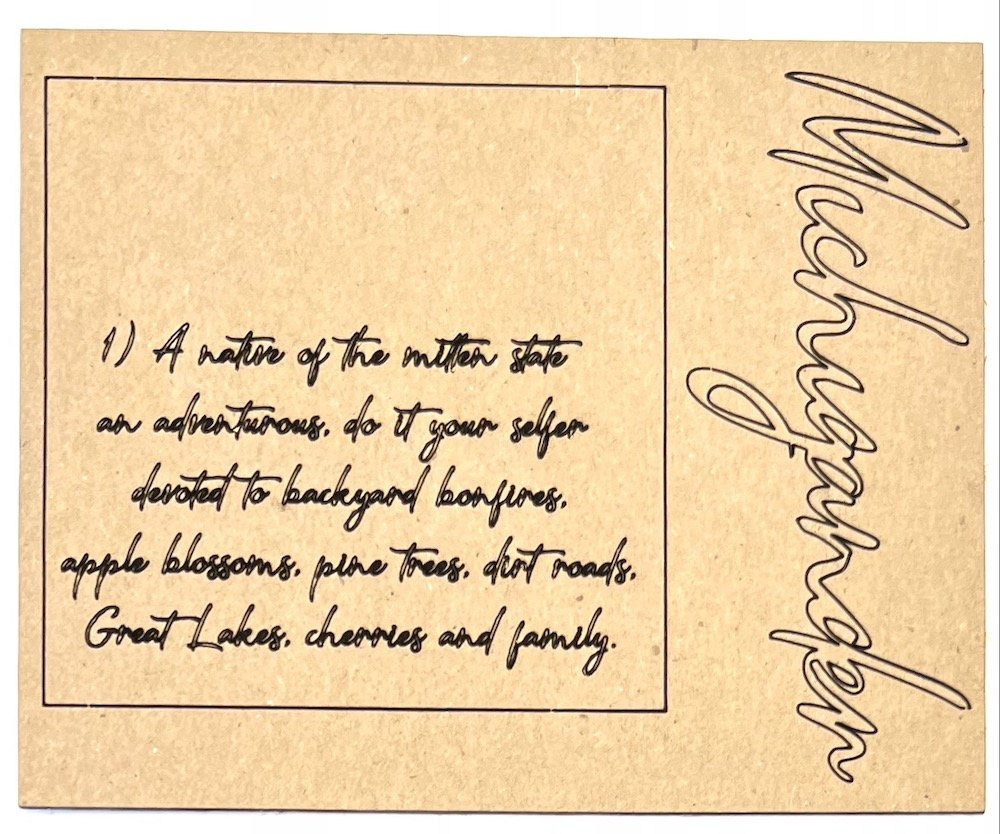 Michigander
1) A native of the mitten state
an adventurous, do it your selfer
devoted to backyard bonfires,
apple blossoms, pine trees, dirt roads,
Great Lakes, cherries and family.